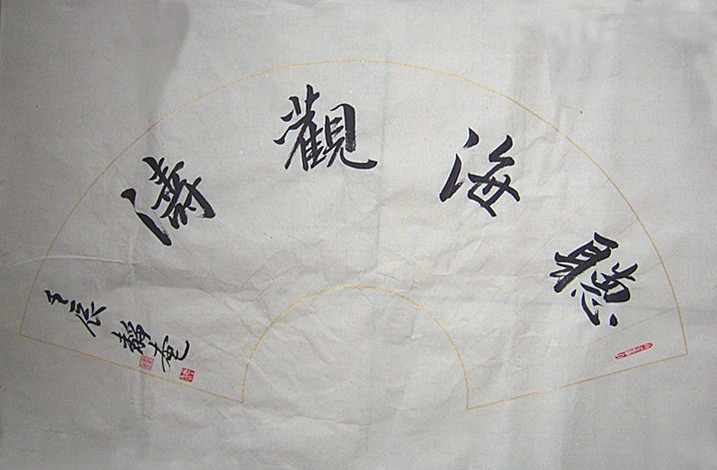 聽海觀濤
壬辰 靜